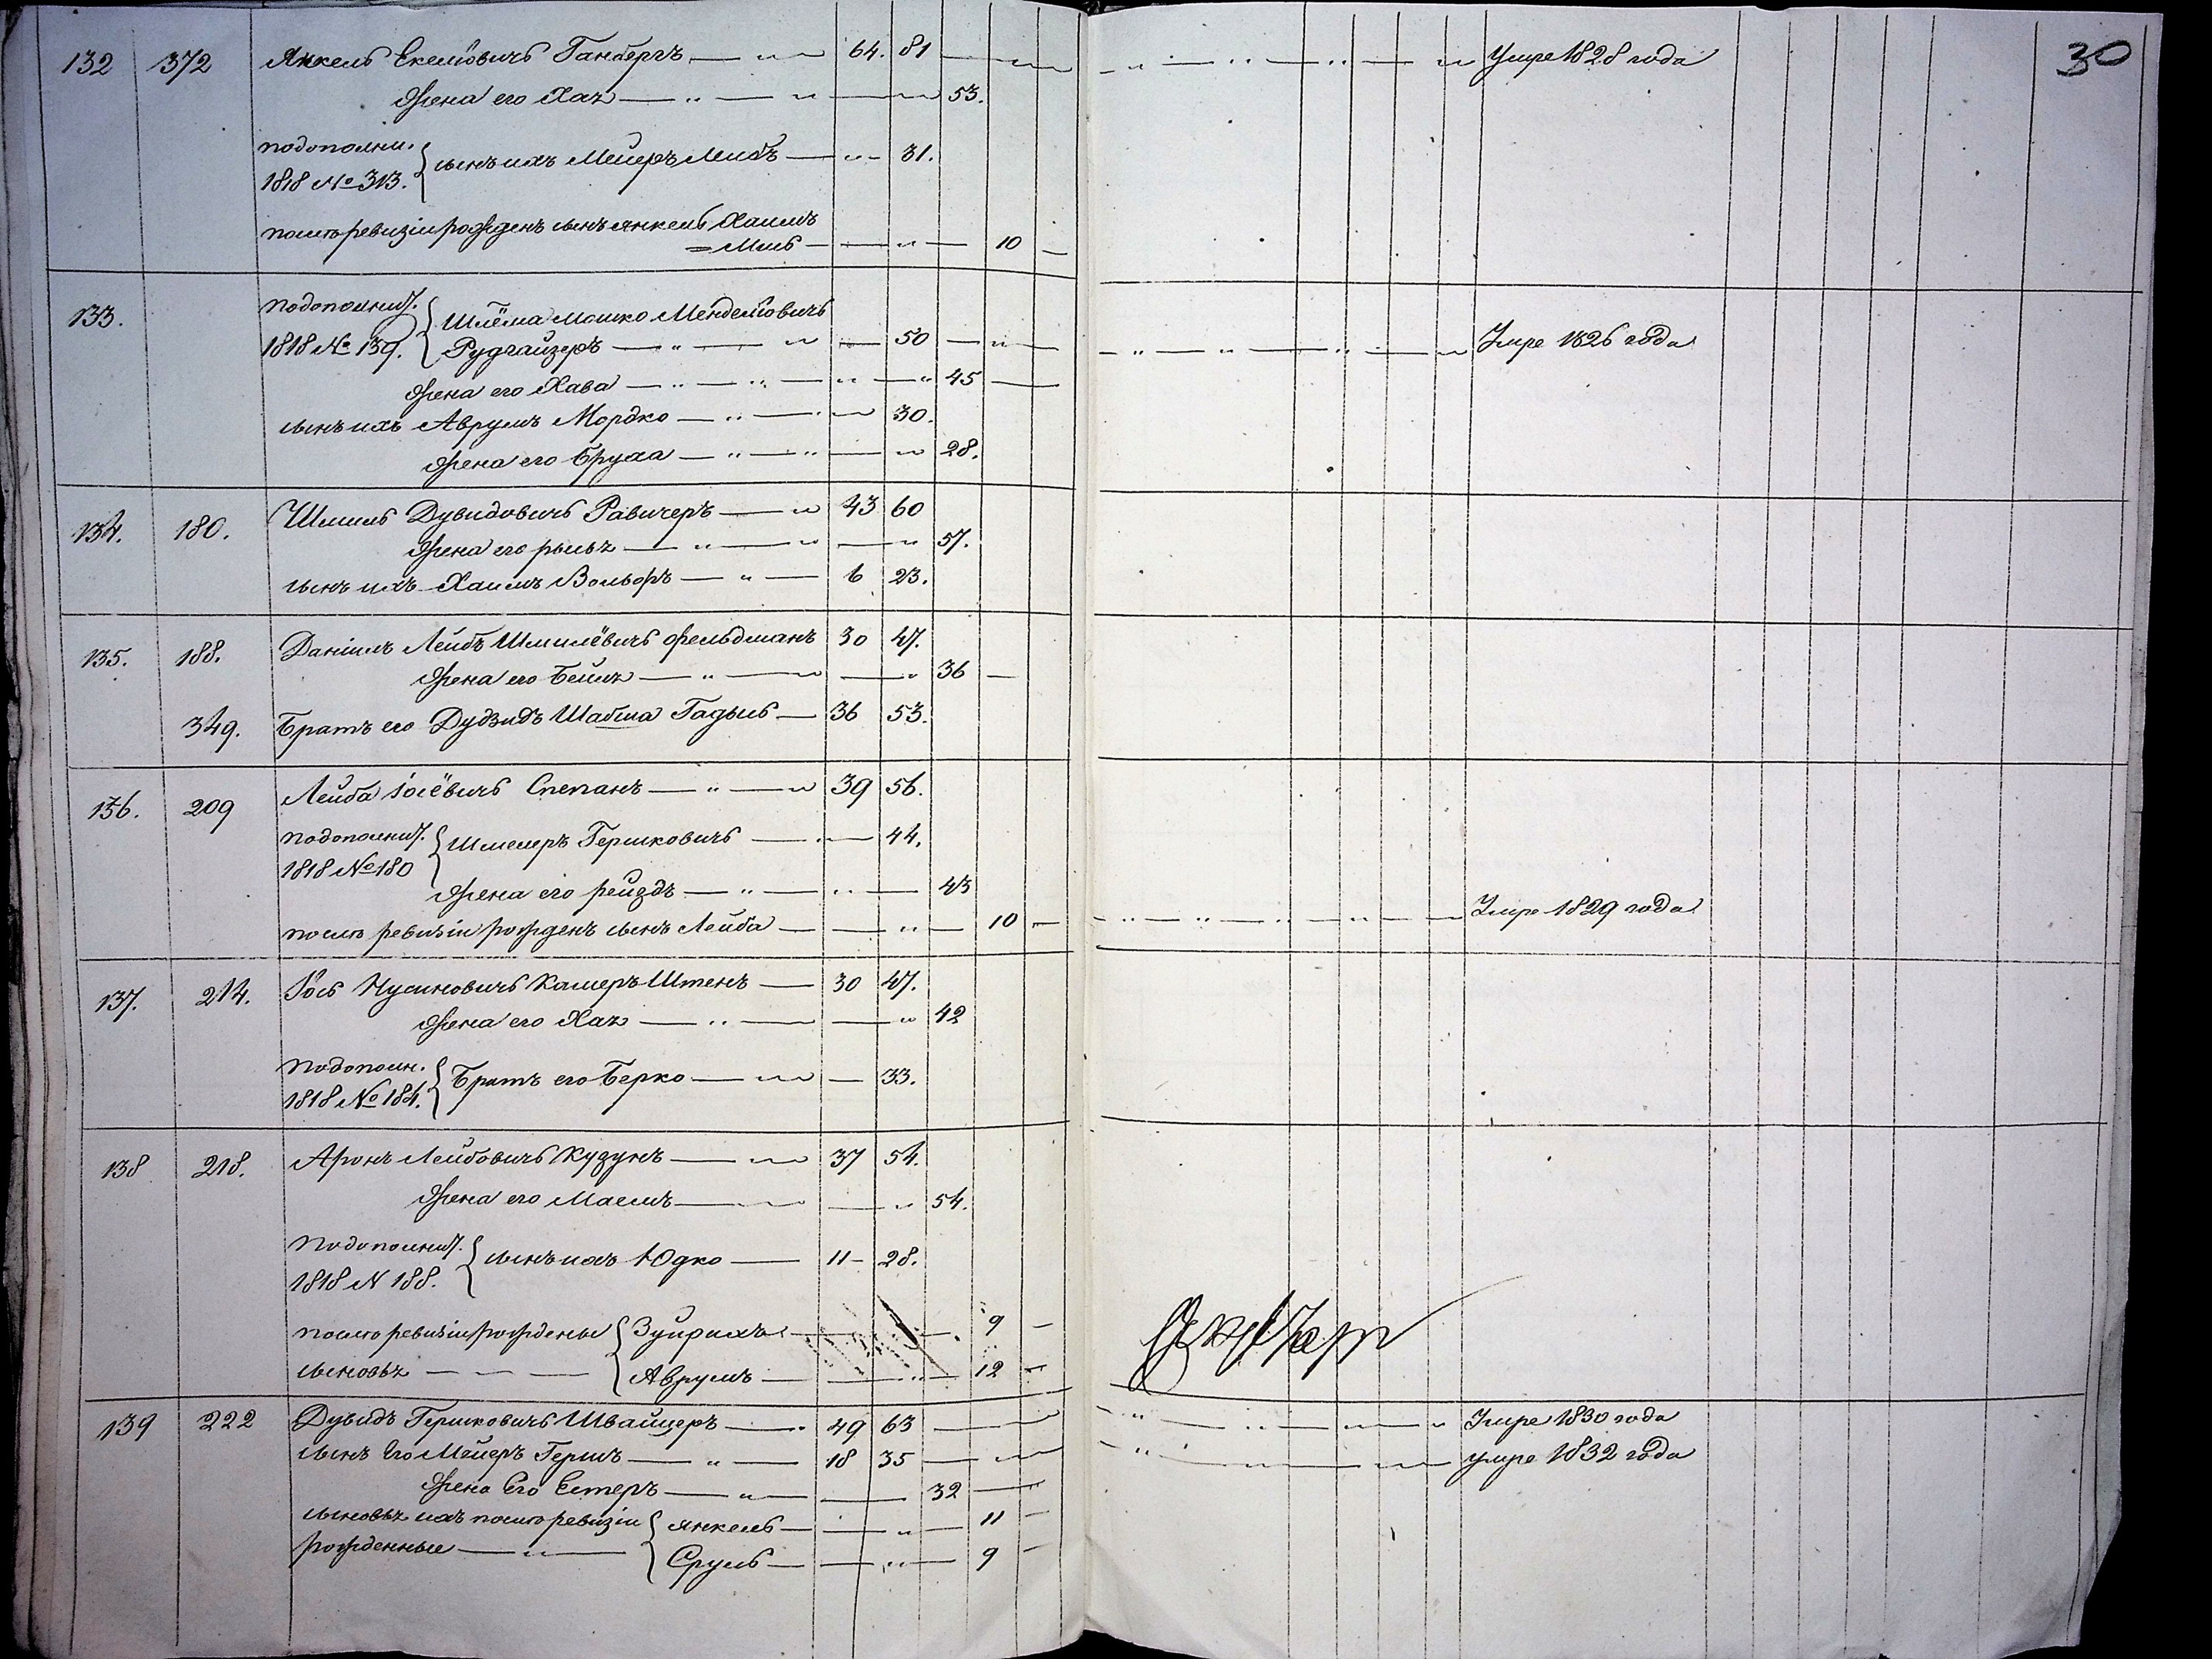 30
132 372 Янкель Екелiовичъ Ганбергъ 64. 81 Умре 1828 года
Жена его Хая 53.
подополни.
1818 № 313. сынъ ихъ Мейеръ Лейбъ 31.
после ревизiи рожденъ сынъ Янкель Хаимъ
10
133. подополнит.
1818 № 139. Шлёма Мошко Менделiовичъ
Рудгайзеръ 50 Умре 1826 года
Жена его Хава 45
сынъ ихъ Аврумъ Мордко 30.
Жена его Бруха 28.
134. 180. Шмиль Дувидовичъ Равичеръ 43 60
Жена его 57.
сынъ ихъ Хаимъ Вольфъ 6 23.
135. 188. Данiилъ Лейбъ Шмилёвичъ Фельдманъ 30 47.
Жена его Бейля 36
349. Братъ его Шабша 36 53.
136. 209 Лейба Iосёвичъ Степанъ 39 56.
подополнит.
1818 № 180 Шмееръ Гершковичъ 44.
Жена его Рейздъ 43
после ревизiи рожденъ сынъ Лейба 10 Умре 1829 года
137. 214. Iось Нусиновичъ Камеръ Штенъ 30 47.
Жена его Хая 42
подополн.
1818 № 184. Братъ его Берко 33.
138 218. Аронъ Лейбовичъ Кузунъ 37 54.
Жена его 54.
подополнит.
1818 N 188. сынъ ихъ Юдко 11 28.
после ревизiи рождены 9
сыновья Аврумъ 12
139 222 Дувидъ Гершковичъ Швайцеръ 49 63 Умре 1830 года
сынъ Его Мейеръ Гершъ 18 35 умре 1832 года
Жена Его Естеръ 32
сыновья ихъ после ревизiи Янкель 11
рожденные Сруль 9